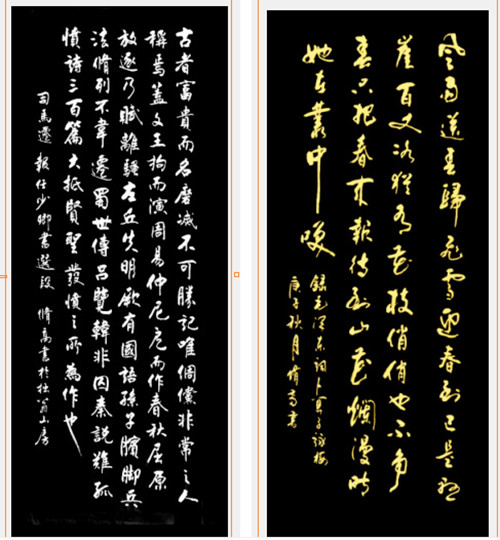 古者富貴而名磨滅不可勝記唯倜儻非常之人
稱焉蓋文王拘而演周易仲尼厄而作春秋屈原
放逐乃賦離騷左丘失明厥有國語孫子臏腳兵
法脩列不韋遷蜀世傳呂覽韓非囚秦說難孤
憤詩三百篇大抵賢聖發憤之所為作也
司馬遷報任少卿書選段 脩高書於杜翁山房
风雨送春歸飞雪迎春到已是悬
崖百丈冰犹有花枝俏俏也不争
春只把春来報待到山花爛漫时
她在叢中笑
録毛澤东词卜算子詠梅
庚子秋月脩高書